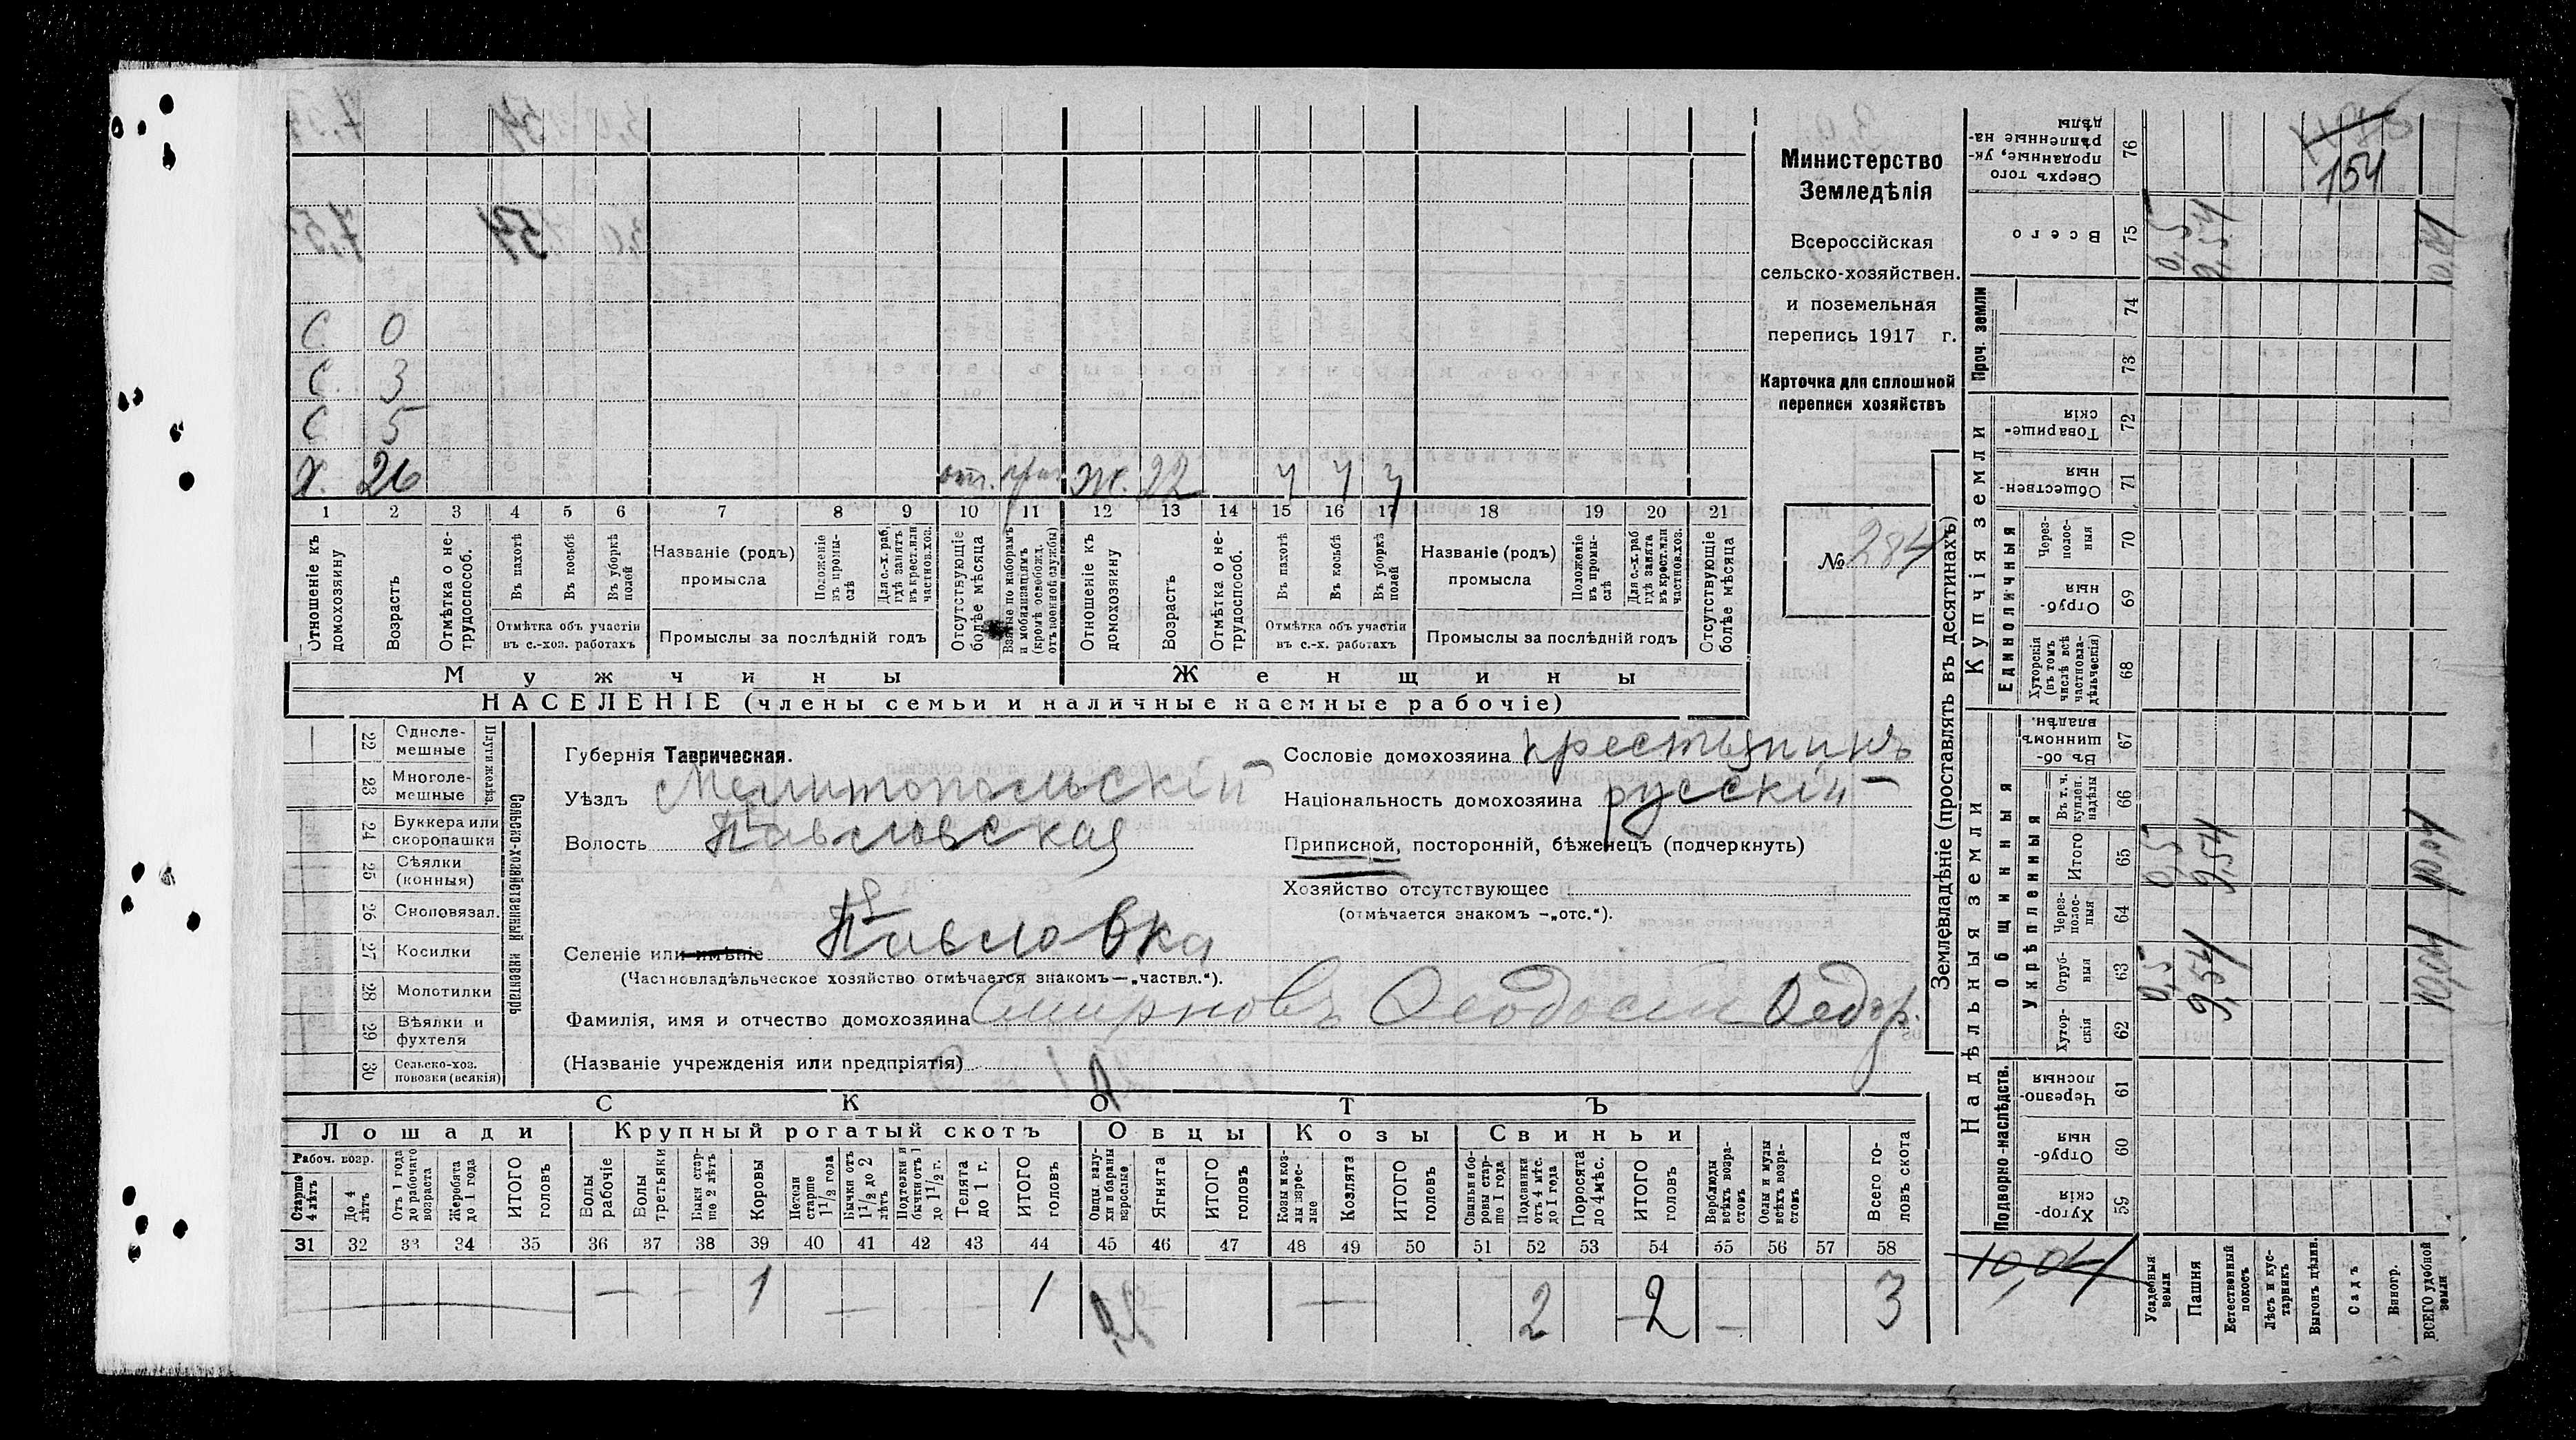 С. 0
С. 3
С. 5
Х. 26 отс. Ж. 22 у у у
1 2 3 4 5 6 7 8 9 10 11 12 13 14 15 16 17 18 19 20 21
Отношеніе къ домохозяину
Возрастъ
Отмѣтка о нетрудоспособ.
Въ пахотѣ
Въ косьбѣ
Въ уборкѣ полей
Отмѣтка объ участіи въ с.-хоз. работахъ
Названіе (родъ) промысла
Положеніе въ промыслѣ
Для с.-х. раб. гдѣ занятъ въ крест. или частновл. хоз.
Промыслы за послѣдній годъ
Отсутствующіе болѣе мѣсяца
Взятые по наборамъ и мобилизаціямъ (кромѣ освобожд. отъ военной службы)
Отношеніе къ домохозяину
Возрастъ
Отмѣтка о нетрудоспособ.
Въ пахотѣ
Въ косьбѣ
Въ уборкѣ полей
Отмѣтка объ участіи въ с.-х. работахъ
Названіе (родъ) промысла
Положеніе въ промыслѣ
Для с.-х. раб. гдѣ занята въ крест. или частнов. хоз.
Промыслы за послѣдній годъ
Отсутствующіе болѣе мѣсяца
Мужчины Женщины
НАСЕЛЕНІЕ (члены семьи и наличные наемные рабочіе)
Министерство
Земледѣлія
Всероссійская
сельско-хозяйствен.
и поземельная
перепись 1917 г.
Карточка для сплошной
переписи хозяйствъ
№ 284
22 Одноле-мешные
23 Многоле-мешные
Плуги желѣз.
24 Буккера или скоропашки
25 Сѣялки (конныя)
26 Сноповязал.
27 Косилки
28 Молотилки
29 Вѣялки и фухтеля
30 Сельско-хоз. повозки (всякія)
Сельско-хозяйственный инвентарь
Губернія Таврическая.
Уѣздъ Мелитопольскій
Волость Павловская
Селеніе или имѣніе Павловка
(Частновладѣльческое хозяйство отмѣчается знакомъ—„частвл.“).
Фамилія, имя и отчество домохозяина Смирновъ Ѳеодосій Ѳедор.
(Названіе учрежденія или предпріятія)
Сословіе домохозяина крестьянинъ
Національность домохозяина русскій
Приписной, посторонній, бѣженецъ (подчеркнуть)
Хозяйство отсутствующее
(отмѣчается знакомъ —„отс.“).
СКОТЪ
Лошади Крупный рогатый скотъ Овцы Козы Свиньи
Рабоч. возр.
Старше 4 лѣтъ
До 4 лѣтъ
Отъ 1 года до рабочаго возраста
Жеребята до 1 года
ИТОГО головъ
Волы рабочіе
Волы третьяки
Быки старше 2 лѣтъ
Коровы
Нетели старше 1 1/2 года
Бычки отъ 1 1/2 до 2 лѣтъ
Подтелки и бычки отъ 1 до 1 1/2 г.
Телята до 1 г.
ИТОГО головъ
Ягнята
ИТОГО головъ
Козы и козлы взрослые
Козлята
ИТОГО головъ
Свиньи и боровы старше 1 года
Подсвинки отъ 4 мѣс. до 1 года
Поросята до 4 мѣс.
ИТОГО головъ
Верблюды всѣхъ возрастовъ
Ослы и мулы всѣхъ возрастовъ
Всего головъ скота
31 32 33 34 35 36 37 38 39 40 41 42 43 44 45 46 47 48 49 50 51 52 53 54 55 56 57 58
1 1 2 2 3
Землевладѣніе (проставлять въ десятинахъ)
Надѣльныя земли Купчія земли Проч. земли
Подворно-наслѣдств. Общинныя Укрѣпленныя Единоличныя
76 Сверхъ того проданные, укрѣпленные надѣлы
75 Всего
74
73
72 Товарищескія
71 Общественныя
70 Черезполосныя
69 Отрубныя
68 Хуторскія (въ томъ числѣ всѣ частновладѣльческія)
67 Въ общинномъ владѣн.
66 Въ т. ч. куплен. надѣлы
65 Итого
64 Черезполосныя
63 Отрубныя
62 Хуторскія
61 Черезполосныя
60 Отрубныя
59 Хуторскія
154
0,5 9,54 10,04
0,5 9,54 10,04
0,5 9,54 10,04
10,04
Усадебныя земли
Пашня
Естественный покосъ
Лѣсъ и кустарникъ
Выгонъ, цѣлин.
Садъ
Виногр.
ВСЕГО удобной земли